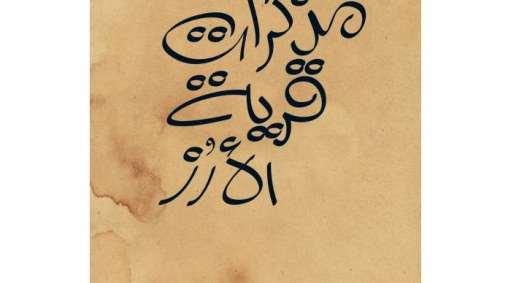 مذكرات
قرية
الأرُز